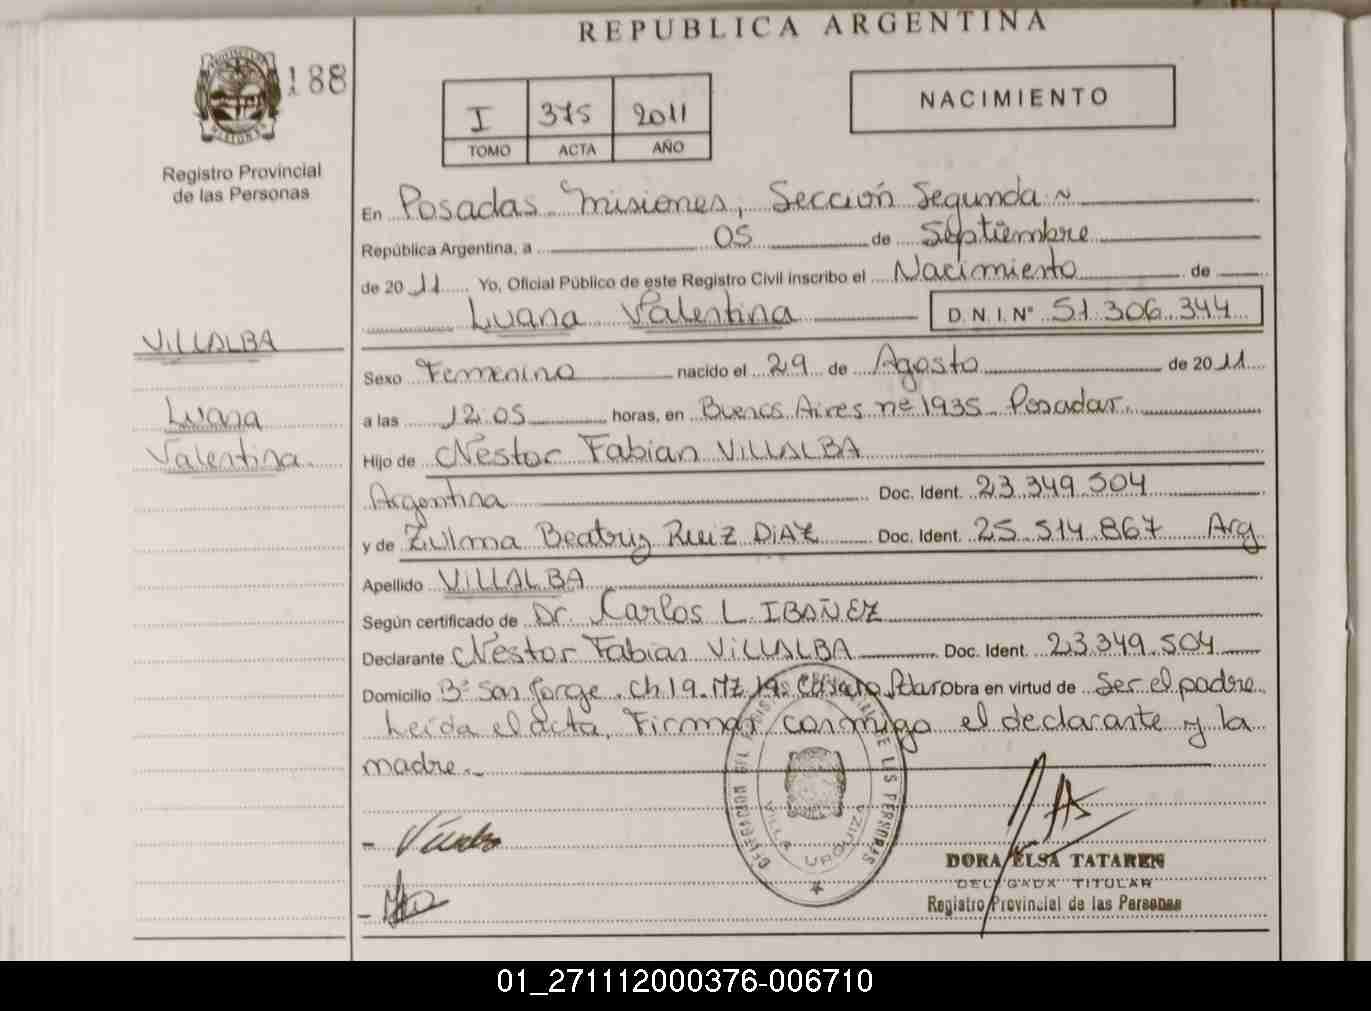 REPUBLICA ARGENTINA
188
I 375 2011
TOMO ACTA AÑO
NACIMIENTO
Registro Provincial
de las Personas
En Posadas Misiones, Sección Segunda
República Argentina, a 05 de Septiembre
de 2011 Yo, Oficial Público de este Registro Civil inscribo el Nacimiento de
Luana Valentina D.N.I.Nº 51.306.344
VILLALBA
Luana
Valentina.
Sexo Femenino nacido el 29 de Agosto de 2011
a las 12.05 horas, en Buenos Aires nº 1935 Posadas
Hijo de Néstor Fabian VILLALBA
Argentina Doc. Ident. 23.349.504
y de Zulma Beatriz RUIZ DIAZ Doc. Ident. 25.514.867 Arg
Apellido VILLALBA
Según certificado de Dr. Carlos L. IBAÑEZ
Declarante Néstor Fabian VILLALBA Doc. Ident. 23.349.504
Domicilio Bº San Jorge. Ch 19. MZ 19. obra en virtud de Ser el padre
Leída el acta, Firman conmigo el declarante y la
madre.
VILLA URQUIZA
DORA ELSA TATAREN
DELEGADA TITULAR
Registro Provincial de las Personas
01_271112000376-006710